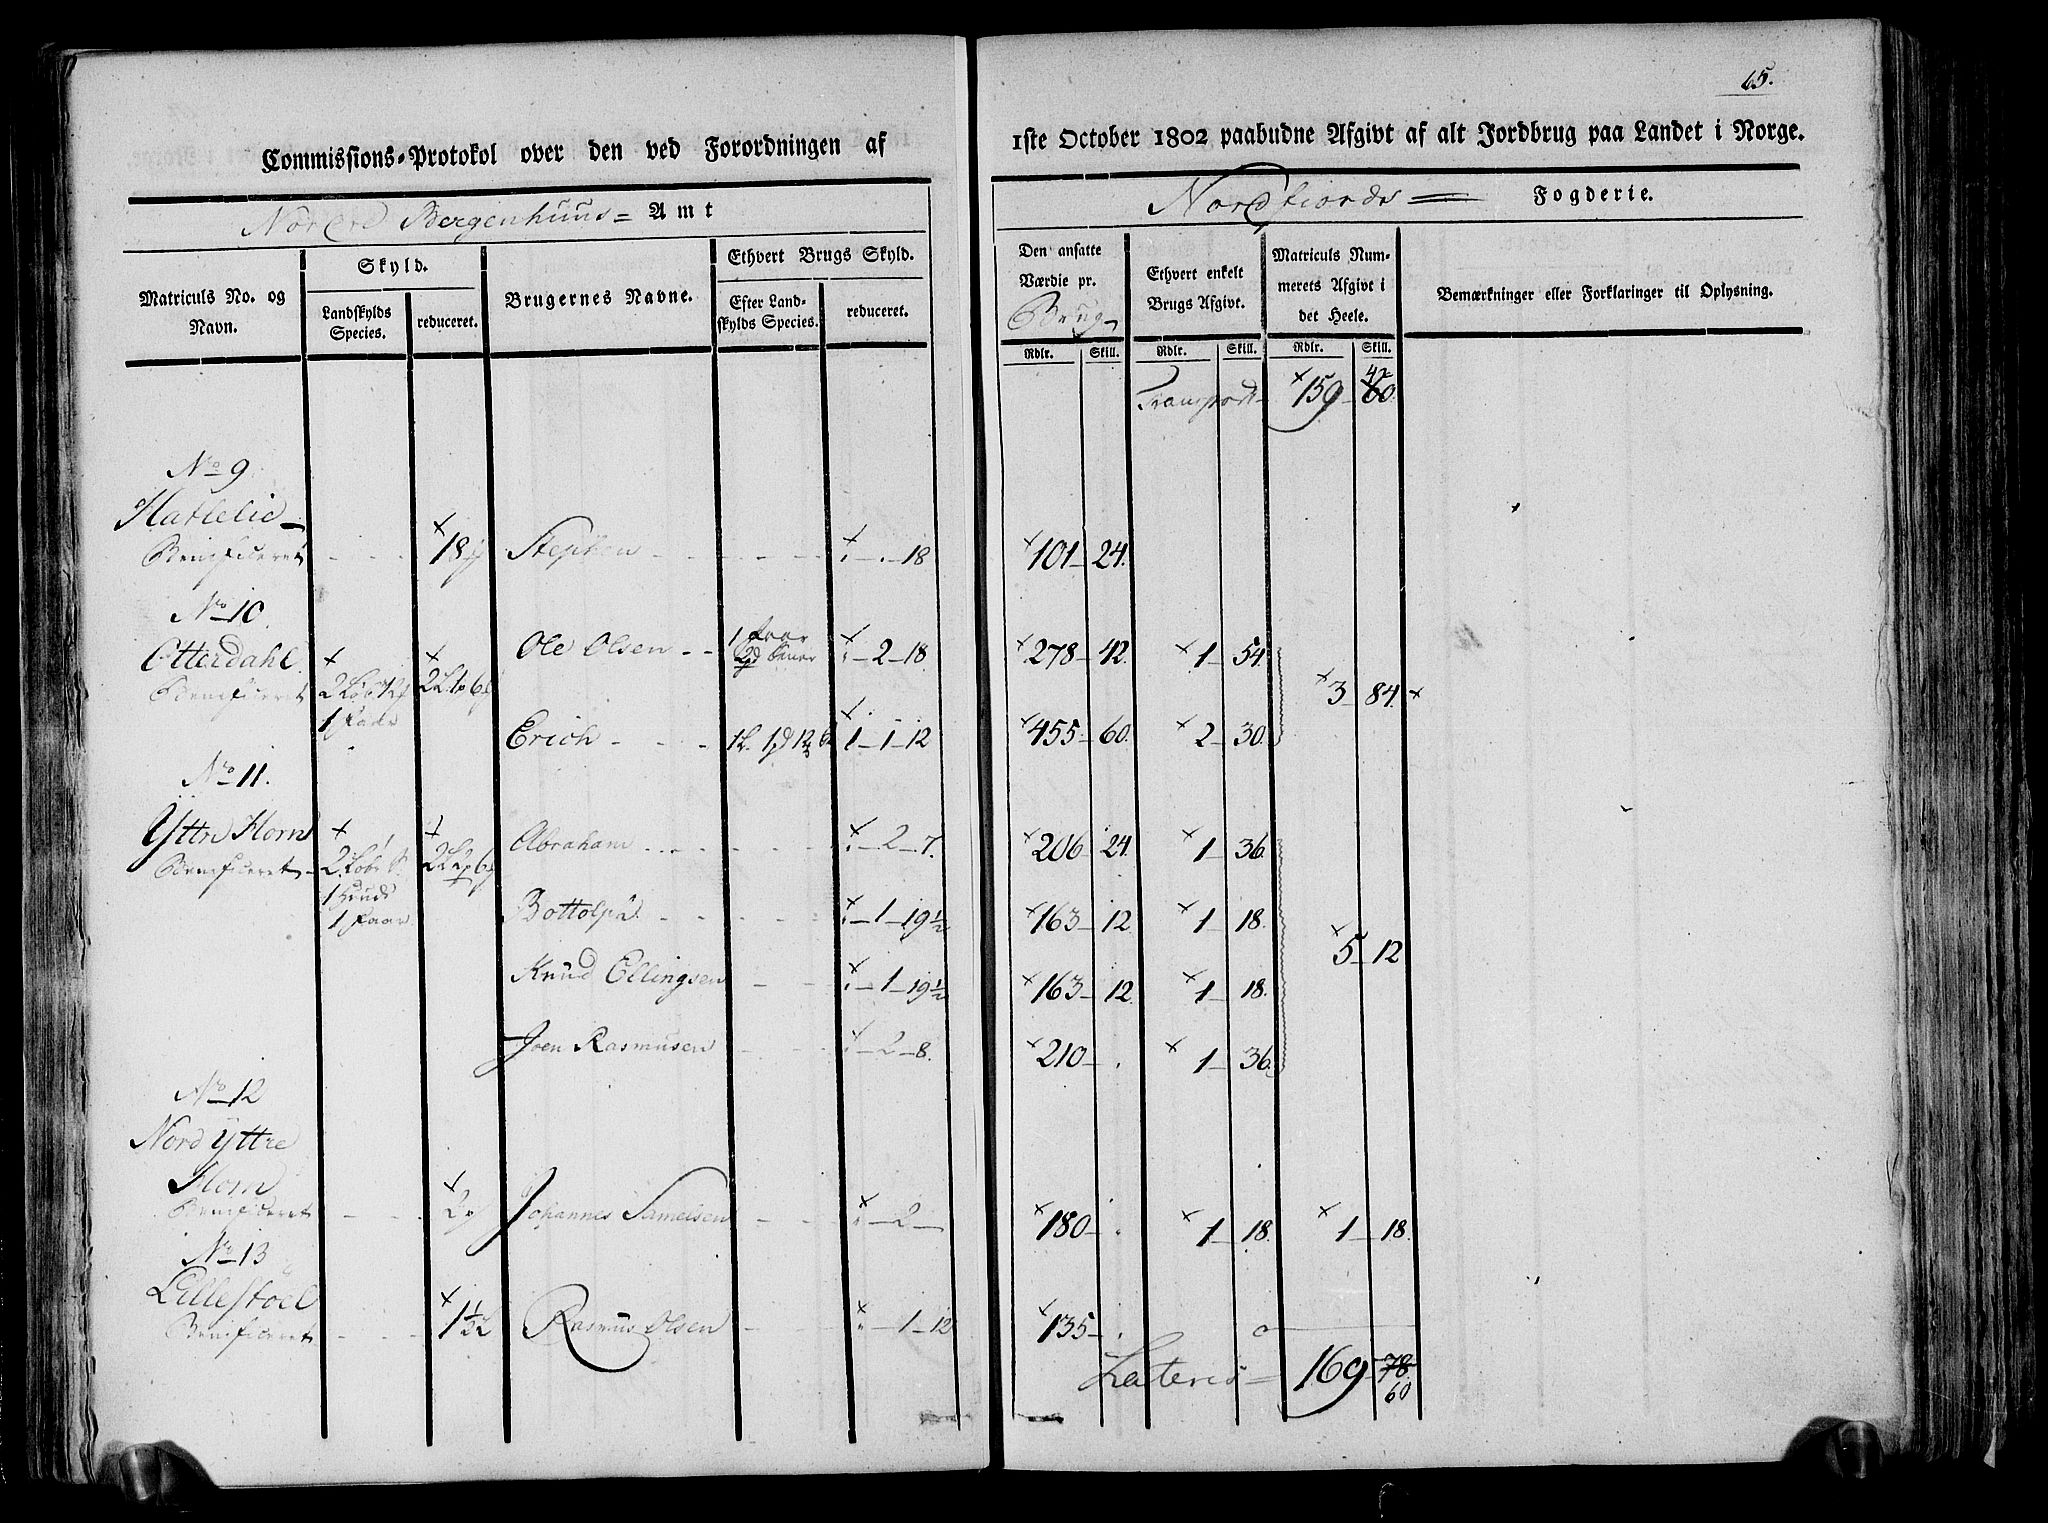 65.
Commissions-Protokol over den ved Forordningen af 1ste October 1802 paabudne Afgivt af alt Jordbrug paa Landet i Norge.
Nordre Bergenhuus = Amt
Nordfiords = Fogderie.
Matriculs No. og Navn.
Skyld.
Landskylds Species.
reduceret.
Brugernes Navne.
Ethvert Brugs Skyld.
Efter Landskylds Species.
reduceret.
Den ansatte Værdie pr. Brug
Ethvert enkelt Brugs Afgivt.
Matriculs Nummerets Afgivt i det Heele.
Bemærkninger eller Forklaringer til Oplysning.
Rdlr. Skill. Rdlr. Skill. Rdlr. Skill.
Transport 159 - 60 42
No 9
Hatlelie
Beneficeret 18 Stephen 18 101 - 24.
No 10.
Otterdahl Ole Olsen 1 Faar - 2 - 18. 278 - 42. 1 - 54.
Beneficeret 1 Faar 3 84.
Erich 1 - 1 - 12 455 - 60. 2 - 30.
No 11.
Yttre Horn Abraham - 2 - 7. 206 - 24. 1 - 36.
Beneficeret 1 Huud 1 Faar
Bottolph - 1 - 19 1/2 163 - 12. 1 - 18.
5 - 12
Knud Ellingsen - 1 - 19 1/2 163 - 12. 1 - 18.
Joen Rasmusen - 2 - 8. 210 - . 1 - 36.
No 12
Nord Yttre
Horn
Beneficeret Johannes Samelsen - 2 - 180 - . 1 - 18. 1 - 18.
No 13
Lillestöel
Beneficeret Rasmus Olsen - 1 - 12 135 - . o
Lateris = 169 - 78. 60